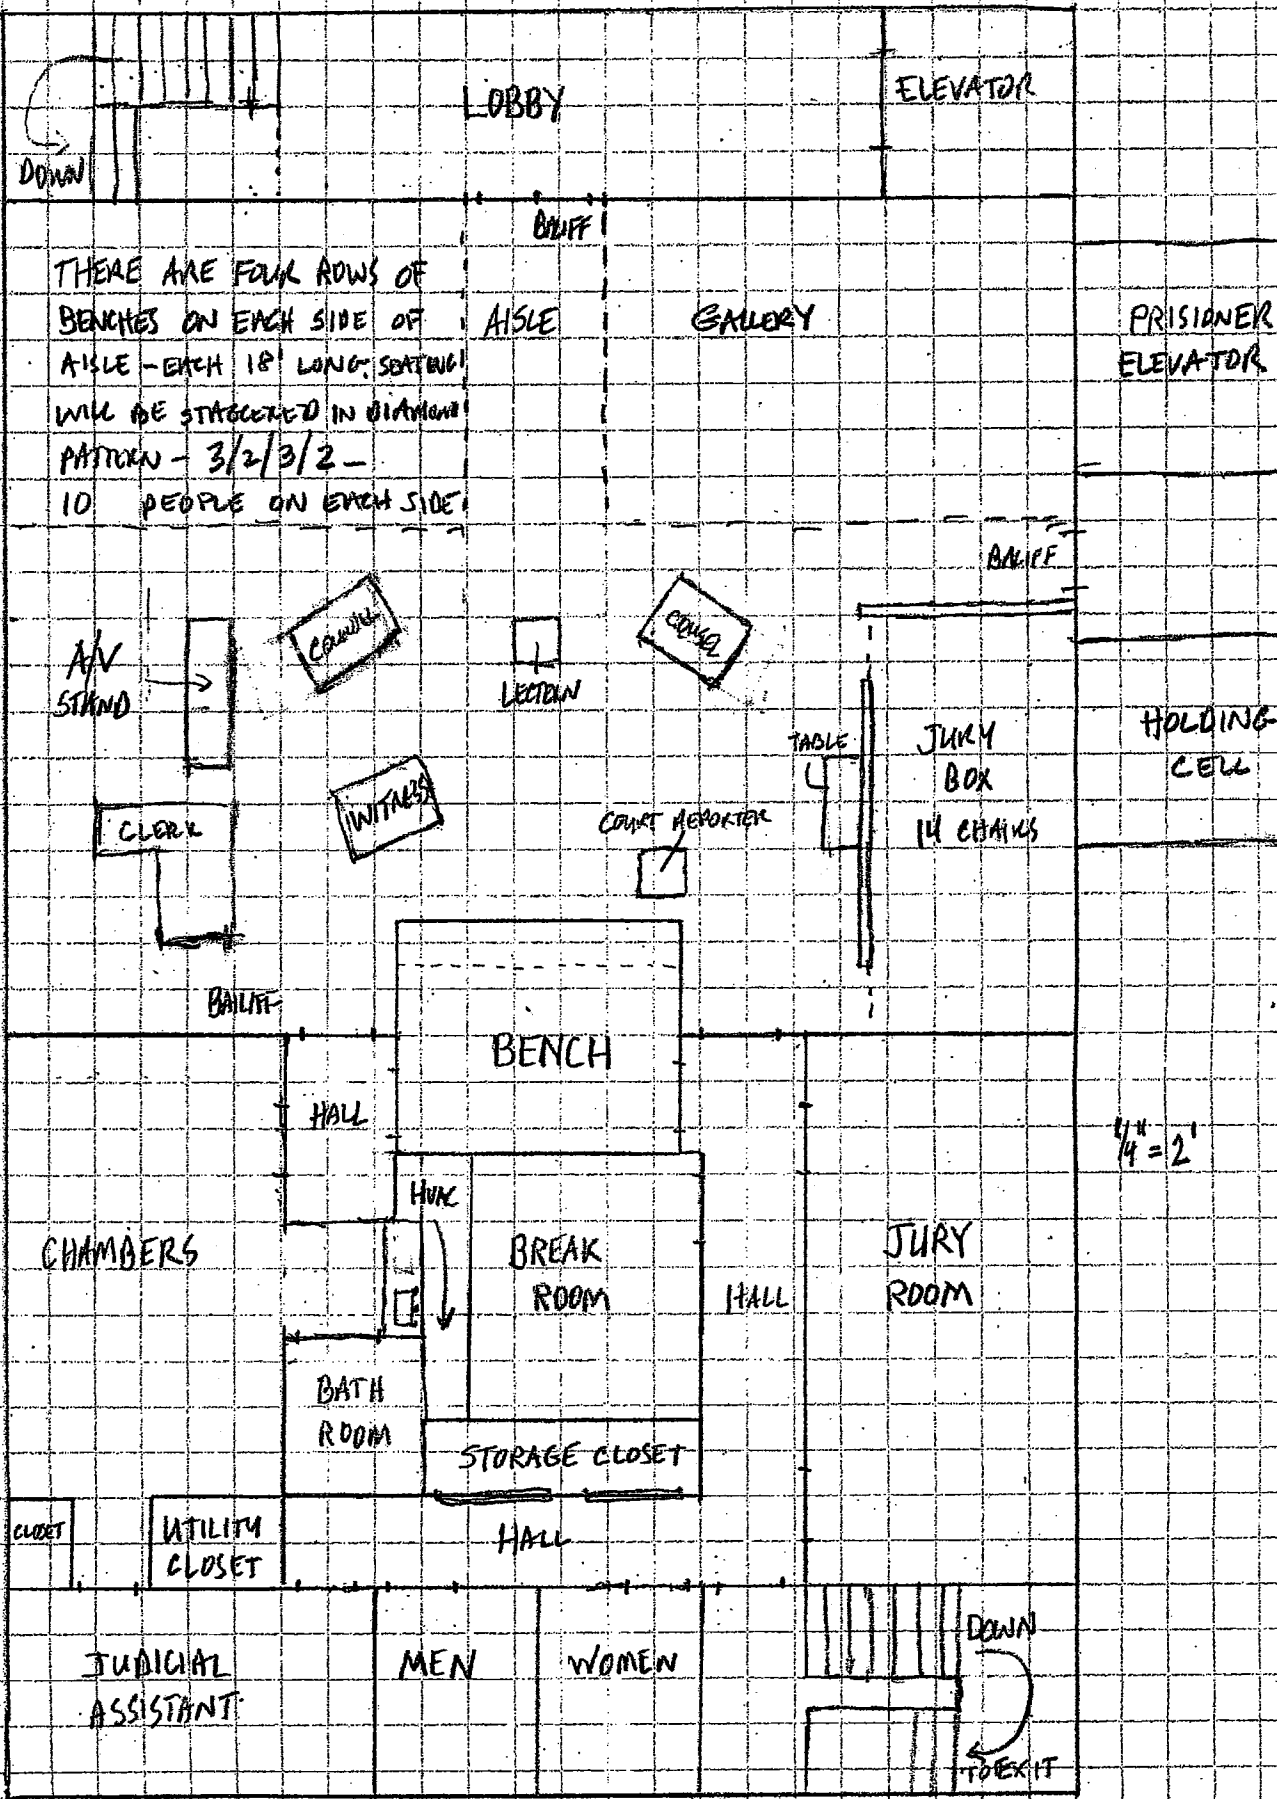 LOBBY
ELEVATOR
DOWN
BALIFF
THERE ARE FOUR ROWS OF
BENCHES ON EACH SIDE OF
AISLE - EACH 18' LONG. SEATING
WILL BE STAGGERED IN DIAMOND
PATTERN - 3/2/3/2 -
10 PEOPLE ON EACH SIDE.
AISLE
GALLERY
PRISIONER
ELEVATOR
BALIFF
A/V
STAND
COUNSEL
LECTERN
COUSEL
TABLE
JURY
BOX
14 CHAIRS
HOLDING
CELL
CLERK
WITNESS
COURT REPORTER
BAILIFF
BENCH
HALL
1/4" = 2'
HVAC
CHAMBERS
BREAK
ROOM
HALL
JURY
ROOM
BATH
ROOM
STORAGE CLOSET
CLOSET
UTILITY
CLOSET
HALL
JUDICIAL
ASSISTANT
MEN
WOMEN
DOWN
TO EXIT